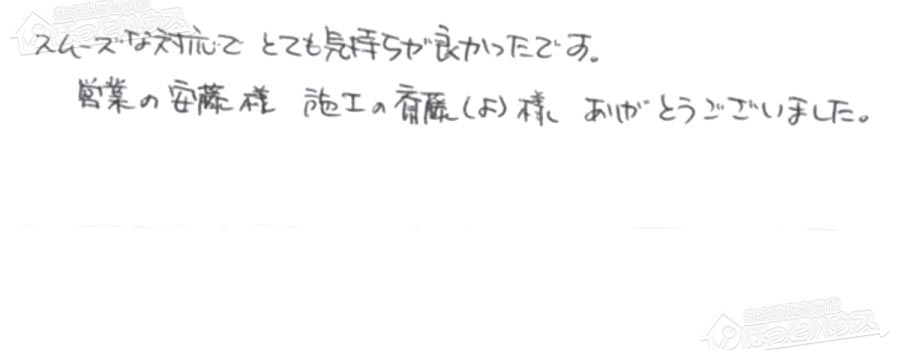 スムーズな対応で とても気持ちが良かったです。
営業の安藤様 施工の斉藤(よ)様 ありがとうございました。
ほっとハウス